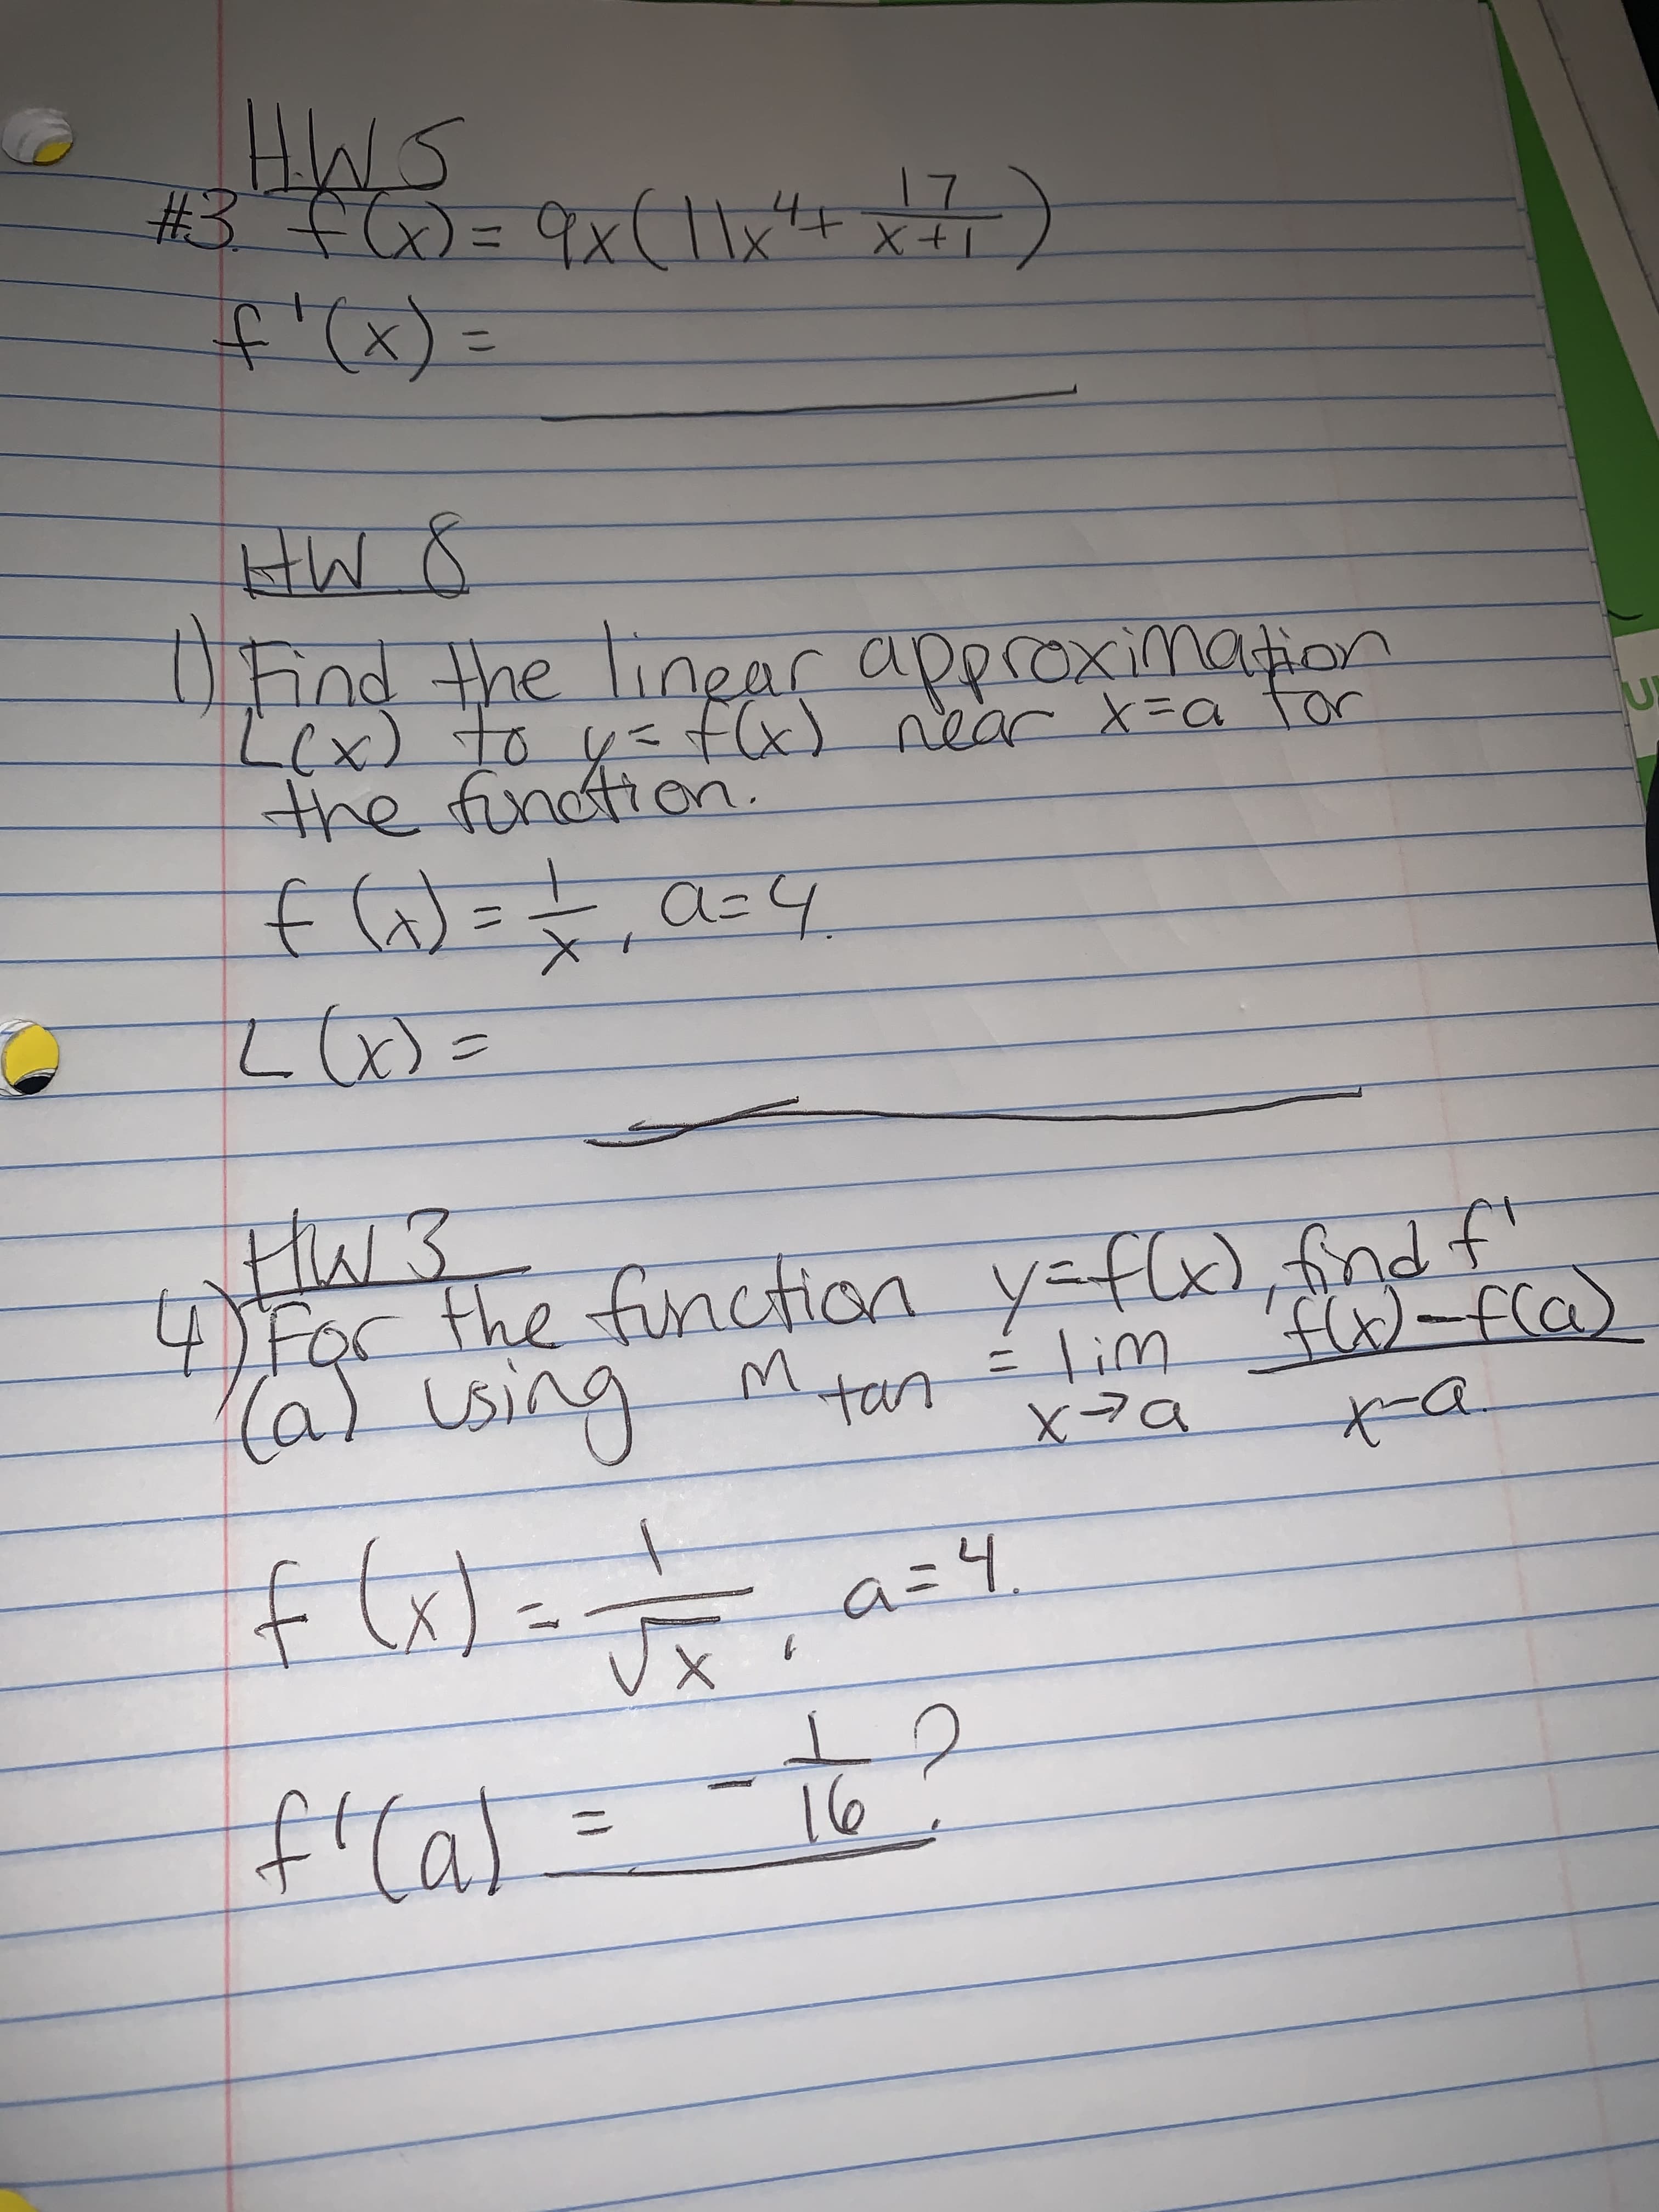 HW5
#3. f(x) = 9x(11x⁴ + 17/(x+1))
f'(x) =
HW 8
1) Find the linear approximation
L(x) to y = f(x) near x=a for
the function.
f(x) = 1/x, a=4.
L(x) =
HW3
4) For the function y=f(x), find f'
(a) using m tan = lim x→a (f(x)-f(a))/(x-a).
f(x) = 1/√x, a=4.
f'(a) = -1/16?